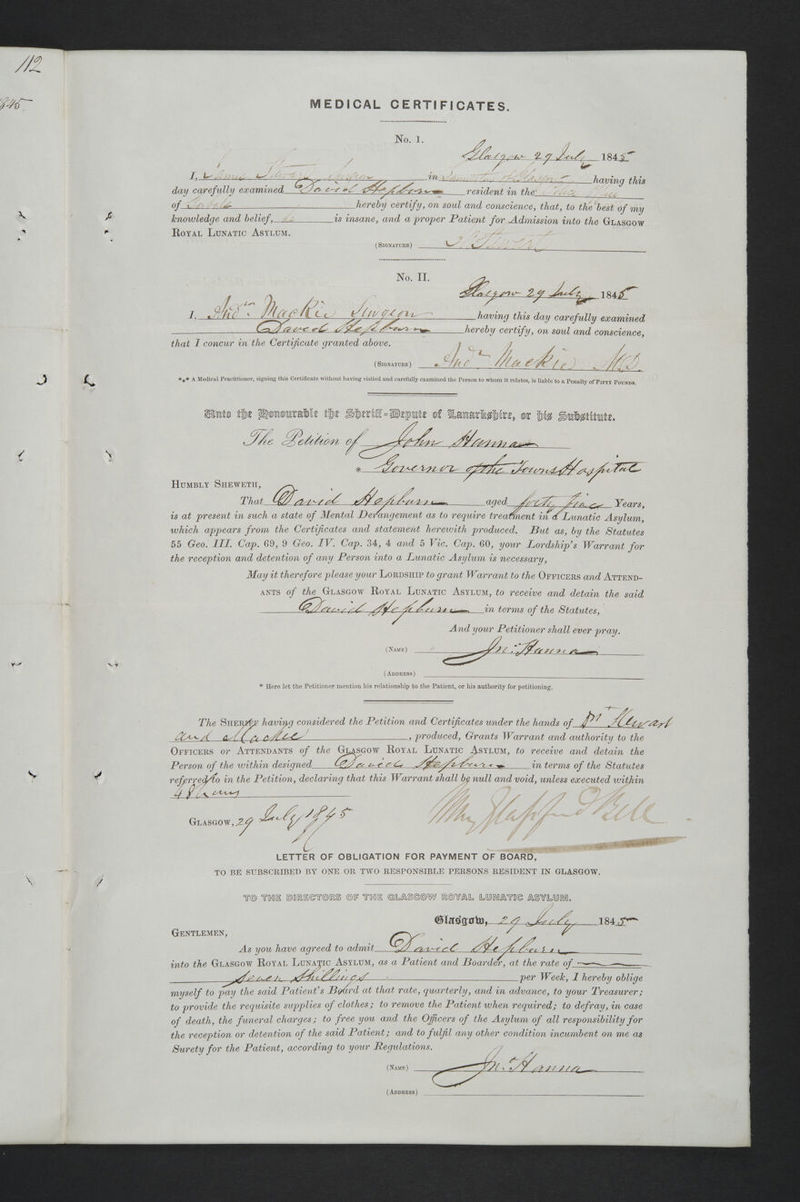 112
1845
MEDICAL CERTIFICATES.
No. I.
Glasgow 29 July 1845
I, James Stewart Surgeon in having this
day carefully examined David Hepburn resident in the
of hereby certify, on soul and conscience, that, to the best of my
knowledge and belief, he is insane, and a proper Patient for Admission into the GLASGOW
ROYAL LUNATIC ASYLUM.
(SIGNATURE) J Stewart
No. II.
Glasgow 29 July 1845
I, Andw. Mackie Surgeon having this day carefully examined
David Hepburn hereby certify, on soul and conscience,
that I concur in the Certificate granted above.
(SIGNATURE) Andw Mackie M.D.
*⁎* A Medical Practitioner, signing this Certificate without having visited and carefully examined the Person to whom it relates, is liable to a Penalty of FIFTY POUNDS.
Unto the Honourable the Sheriff-Depute of Lanarkshire, or his Substitute.
The Petition of John Hanna
* Governor of the Towns Hospital
HUMBLY SHEWETH,
That David Hepburn aged forty five Years,
is at present in such a state of Mental Derangement as to require treatment in a Lunatic Asylum,
which appears from the Certificates and statement herewith produced. But as, by the Statutes
55 Geo. III. Cap. 69, 9 Geo. IV. Cap. 34, 4 and 5 Vic. Cap. 60, your Lordship's Warrant for
the reception and detention of any Person into a Lunatic Asylum is necessary,
May it therefore please your LORDSHIP to grant Warrant to the OFFICERS and ATTEND-
ANTS of the GLASGOW ROYAL LUNATIC ASYLUM, to receive and detain the said
David Hepburn in terms of the Statutes,
And your Petitioner shall ever pray.
(NAME) Jn: Hanna
(ADDRESS)
* Here let the Petitioner mention his relationship to the Patient, or his authority for petitioning.
The SHERIFF having considered the Petition and Certificates under the hands of Drs Stewart
and Mackie, produced, Grants Warrant and authority to the
OFFICERS or ATTENDANTS of the GLASGOW ROYAL LUNATIC ASYLUM, to receive and detain the
Person of the within designed David Hepburn in terms of the Statutes
referred to in the Petition, declaring that this Warrant shall be null and void, unless executed within
48 hours
GLASGOW, 29 July 1845 Bell
LETTER OF OBLIGATION FOR PAYMENT OF BOARD,
TO BE SUBSCRIBED BY ONE OR TWO RESPONSIBLE PERSONS RESIDENT IN GLASGOW.
TO THE DIRECTORS OF THE GLASGOW ROYAL LUNATIC ASYLUM.
Glasgow, 29 July 1845
GENTLEMEN,
As you have agreed to admit David Hepburn
into the GLASGOW ROYAL LUNATIC ASYLUM, as a Patient and Boarder, at the rate of
Seven Shillings per Week, I hereby oblige
myself to pay the said Patient's Board at that rate, quarterly, and in advance, to your Treasurer;
to provide the requisite supplies of clothes; to remove the Patient when required; to defray, in case
of death, the funeral charges; to free you and the Officers of the Asylum of all responsibility for
the reception or detention of the said Patient; and to fulfil any other condition incumbent on me as
Surety for the Patient, according to your Regulations.
(NAME) Jn: Hanna
(ADDRESS)